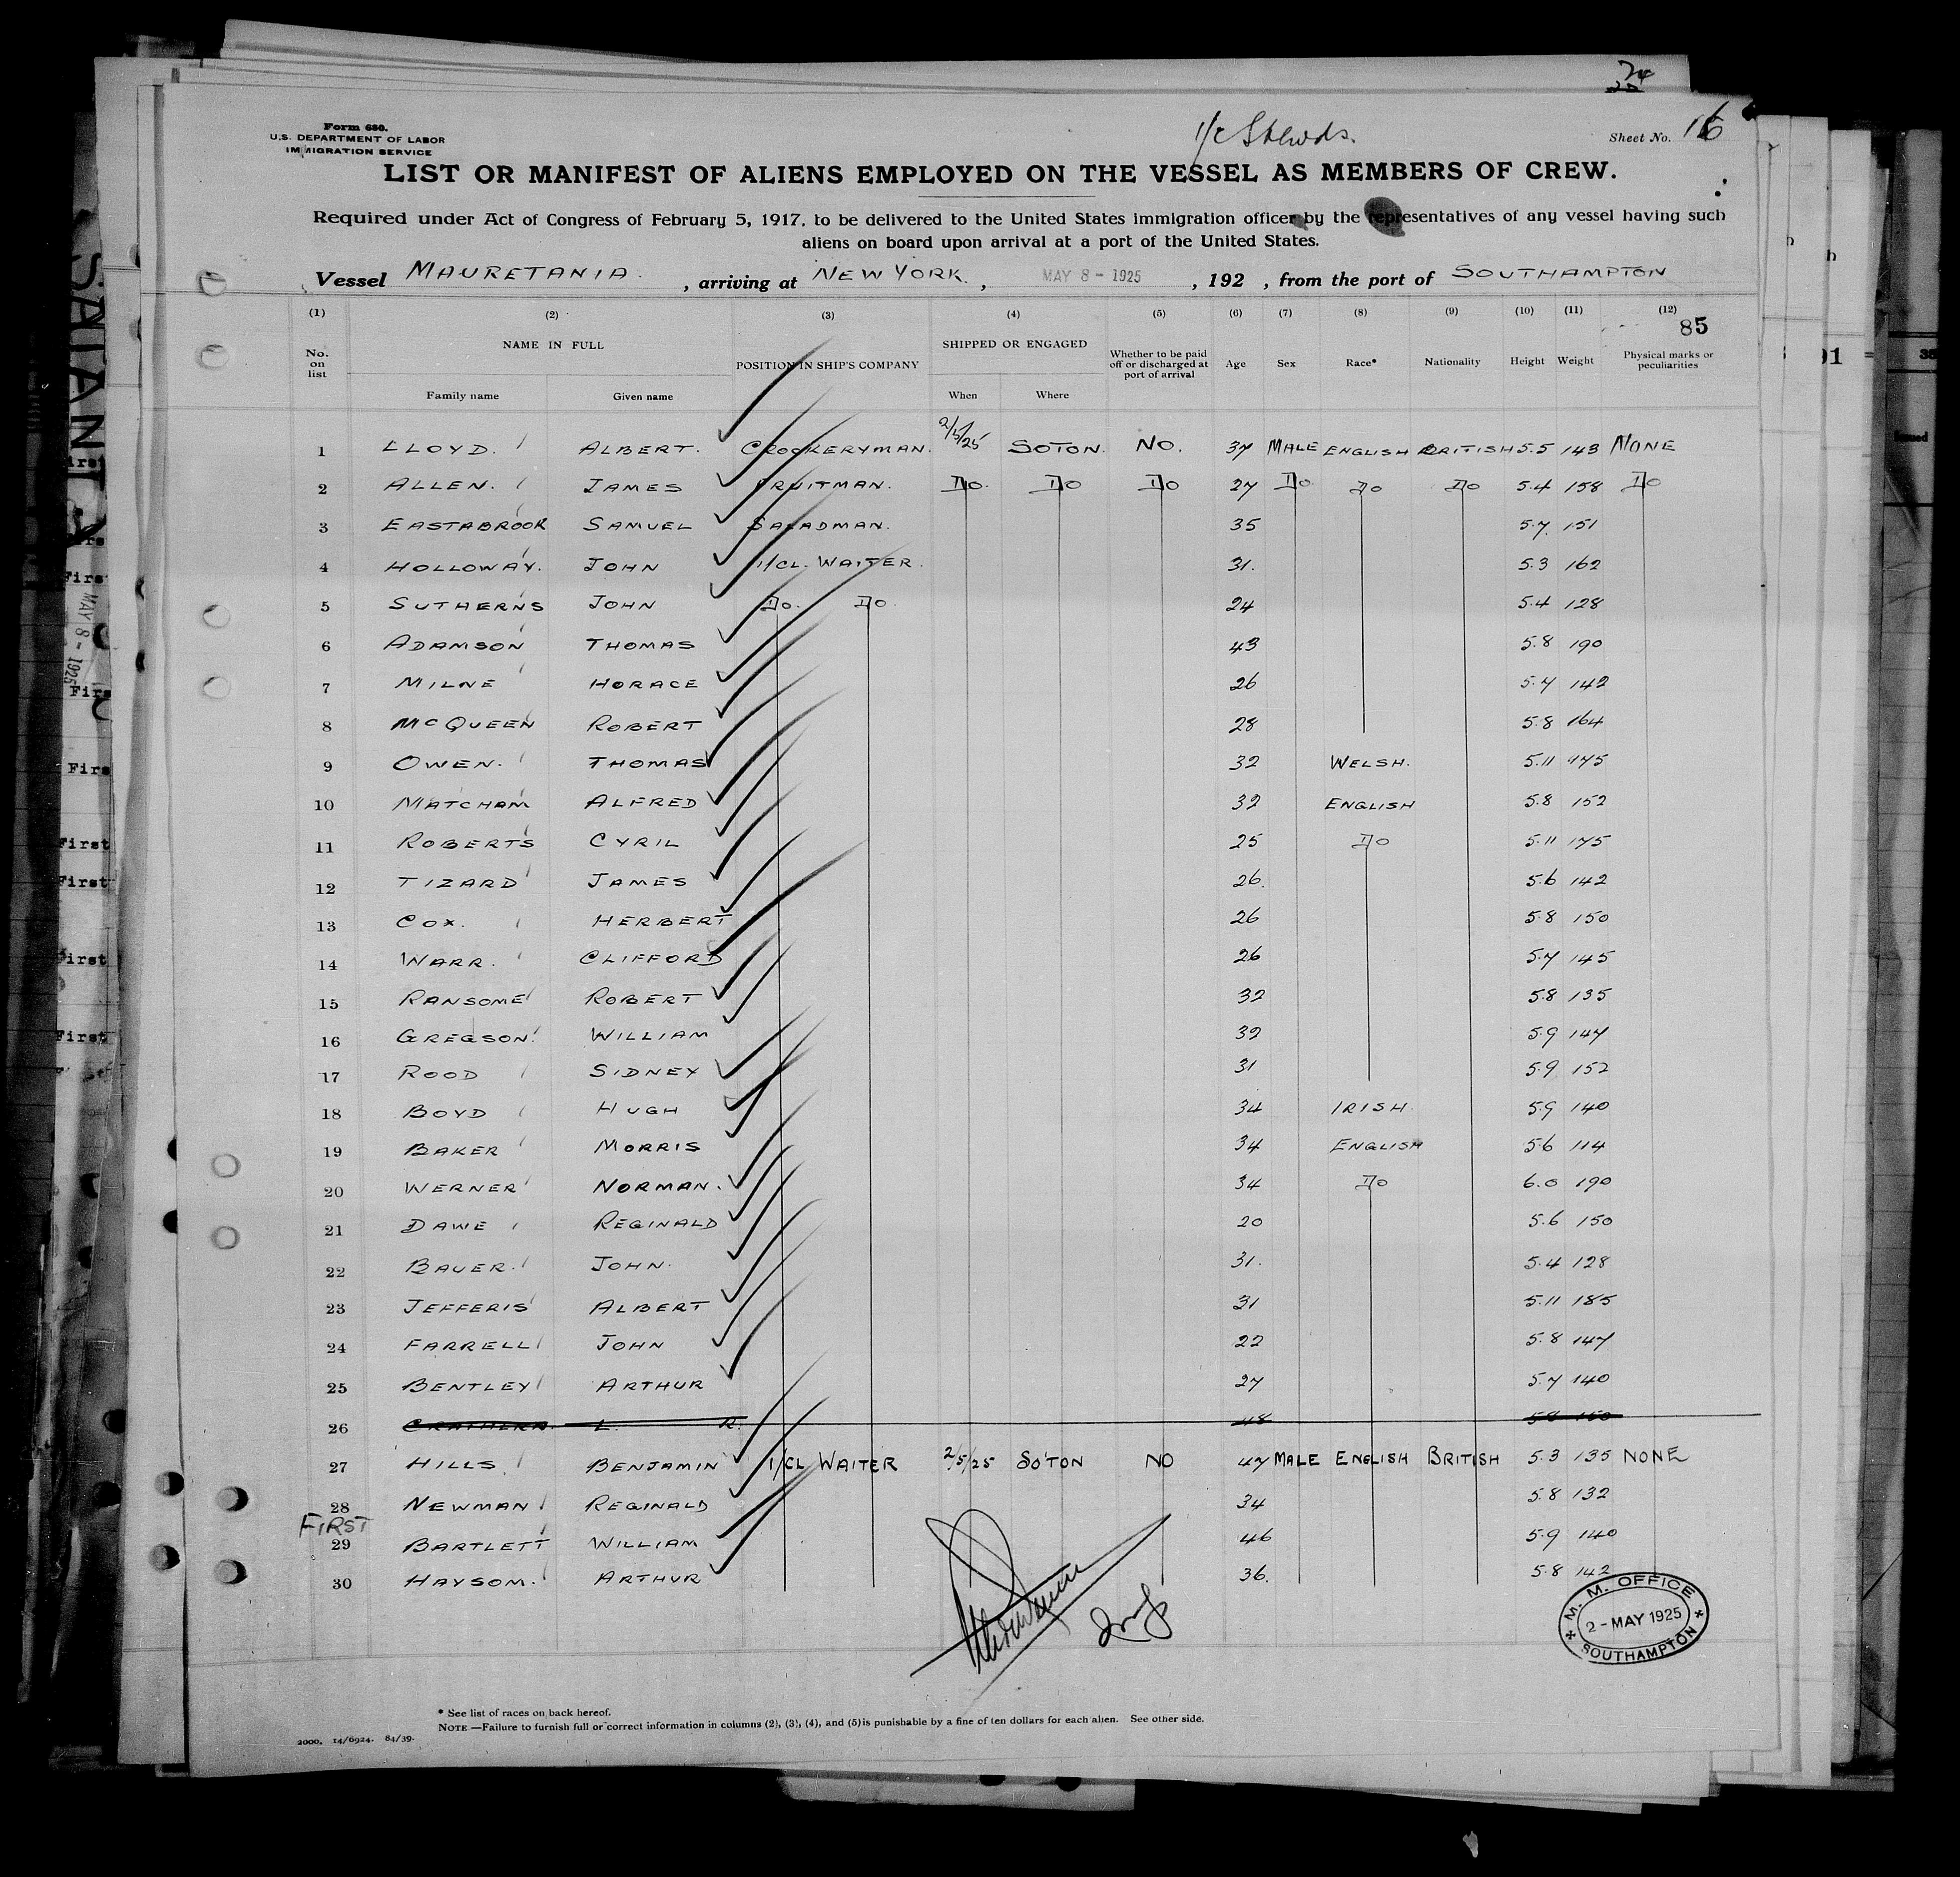 Form 680.
U.S. DEPARTMENT OF LABOR
IMMIGRATION SERVICE
1/c Stewds.
Sheet No. 16
LIST OR MANIFEST OF ALIENS EMPLOYED ON THE VESSEL AS MEMBERS OF CREW.
Required under Act of Congress of February 5, 1917, to be delivered to the United States immigration officer by the representatives of any vessel having such
aliens on board upon arrival at a port of the United States.
Vessel MAURETANIA , arriving at NEW YORK. , MAY 8 - 1925 , 192 , from the port of SOUTHAMPTON
(1) (2) (3) (4) (5) (6) (7) (8) (9) (10) (11) (12)
85
No. on list NAME IN FULL POSITION IN SHIP'S COMPANY SHIPPED OR ENGAGED Whether to be paid off or discharged at port of arrival Age Sex Race* Nationality Height Weight Physical marks or peculiarities
Family name Given name When Where
1 LLOYD. ALBERT. CROCKERYMAN. 2/5/25 SOTON. NO. 37 MALE ENGLISH BRITISH 5.5 143 NONE
2 ALLEN. JAMES FRUITMAN. Do. Do Do 27 Do Do Do 5.4 158 Do
3 EASTABROOK SAMUEL SALADMAN. 35 5.7. 151
4 HOLLOWAY. JOHN 1/CL. WAITER. 31. 5.3 162
5 SUTHERNS JOHN Do. Do. 24 5.4 128
6 ADAMSON THOMAS 43 5.8 190
7 MILNE HORACE 26 5.7 142
8 McQUEEN ROBERT 28 5.8 164
9 OWEN. THOMAS 32 WELSH. 5.11 175
10 MATCHAM ALFRED 32 ENGLISH 5.8 152
11 ROBERTS CYRIL 25 Do 5.11 175
12 TIZARD JAMES 26. 5.6 142
13 COX. HERBERT 26 5.8 150
14 WARR. CLIFFORD 26 5.7 145
15 RANSOME ROBERT 32 5.8 135
16 GREGSON. WILLIAM 32 5.9 147
17 ROOD SIDNEY 31 5.9 152
18 BOYD HUGH 34 IRISH. 5.9 140
19 BAKER MORRIS 34 ENGLISH 5.6 114
20 WERNER NORMAN. 34 Do 6.0 190
21 DAWE REGINALD 20 5.6 150
22 BAUER. JOHN. 31. 5.4 128
23 JEFFERIS ALBERT 31 5.11 185
24 FARRELL JOHN 22 5.8 147
25 BENTLEY ARTHUR 27 5.7 140
26 L. R. 48 5.8 150
27 HILLS BENJAMIN 1/CL WAITER 2/5/25 SO'TON NO 47 MALE ENGLISH BRITISH 5.3 135 NONE
28 NEWMAN REGINALD 34 5.8 132
FIRST
29 BARTLETT WILLIAM 46 5.9 140
30 HAYSOM. ARTHUR 36. 5.8 142
M. M. OFFICE
2 - MAY 1925
SOUTHAMPTON
* See list of races on back hereof.
NOTE —Failure to furnish full or correct information in columns (2), (3), (4), and (5) is punishable by a fine of ten dollars for each alien. See other side.
2000. 14/6924. 84/39.